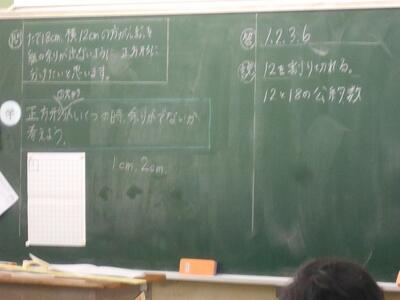 問 たて18cm、横12cmの方がん紙を
紙の余りが出ないように正方形に
分けたいと思います。
学 正方形がいくつの時、余りがでないか
考えよう。
1cm, 2cm,
答 1.2.3.6
説 12を割り切れる。
12と18の公約数